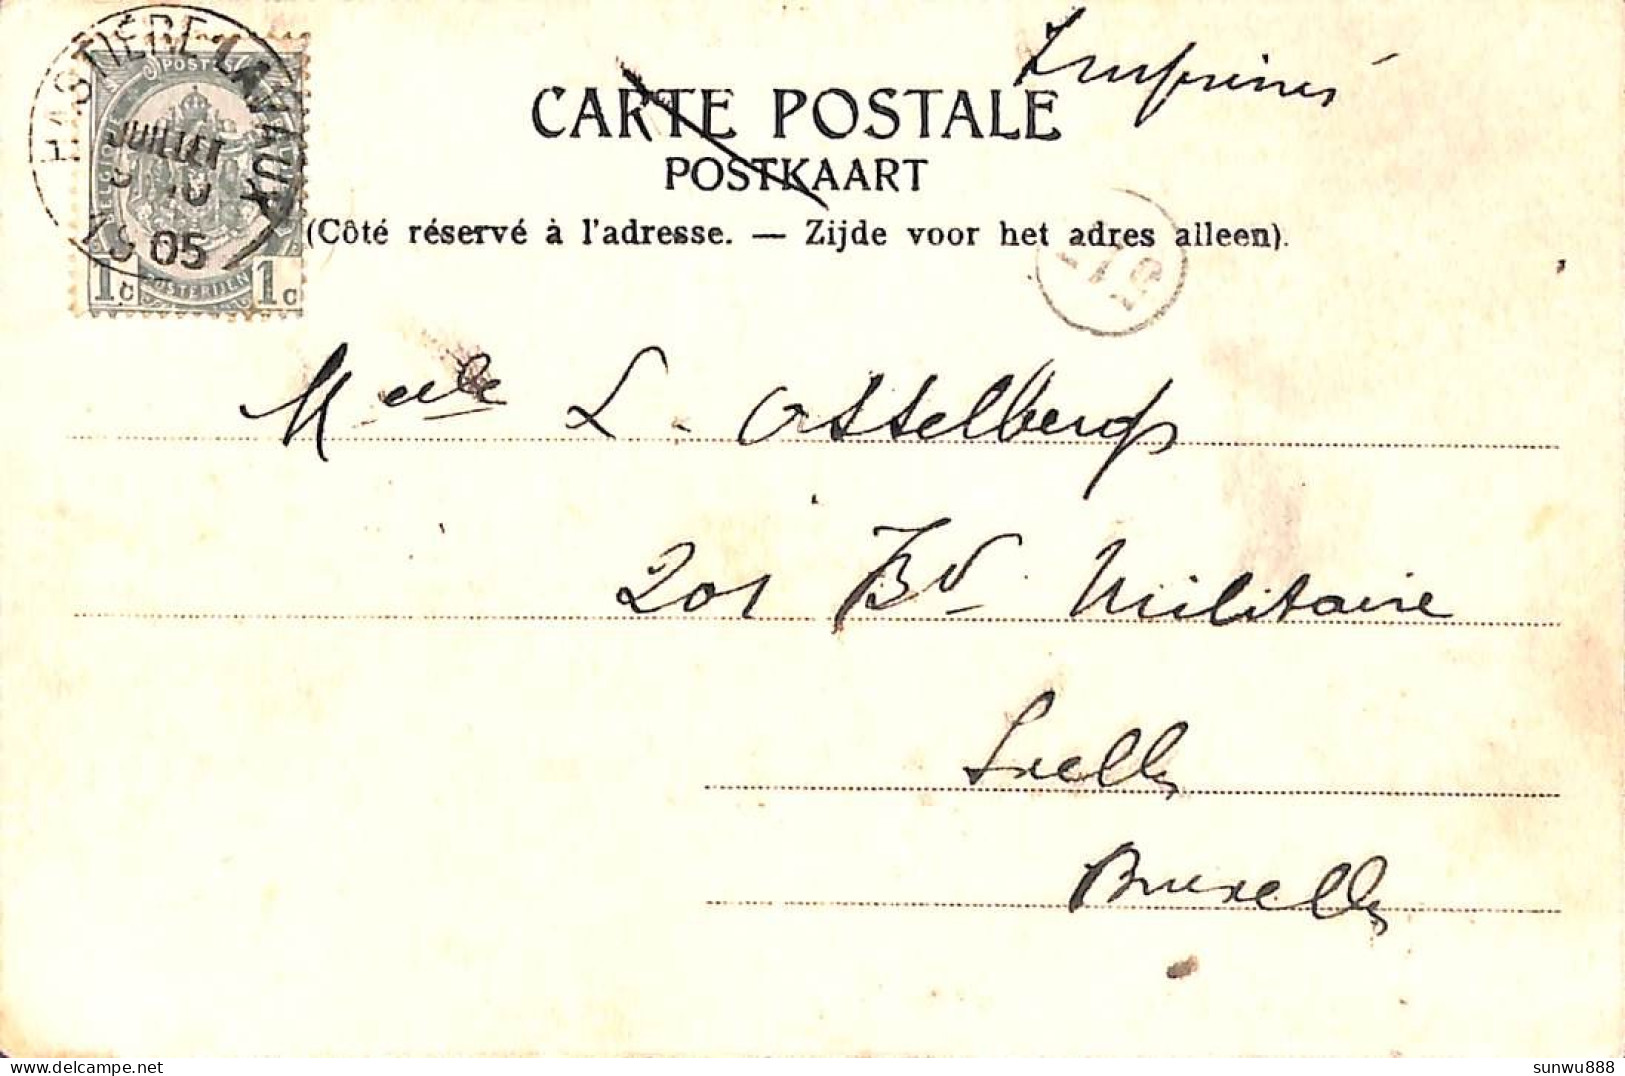 Imprimés
HASTIÈRE-LAVAUX
JUILLET
1905
POSTES
BELGIQUE
POSTERIJEN
1c 1c
CARTE POSTALE
POSTKAART
(Côté réservé à l'adresse. — Zijde voor het adres alleen).
Melle L. Asselbergs
201 Bd Militaire
Ixelles
Bruxelles
sunwu888